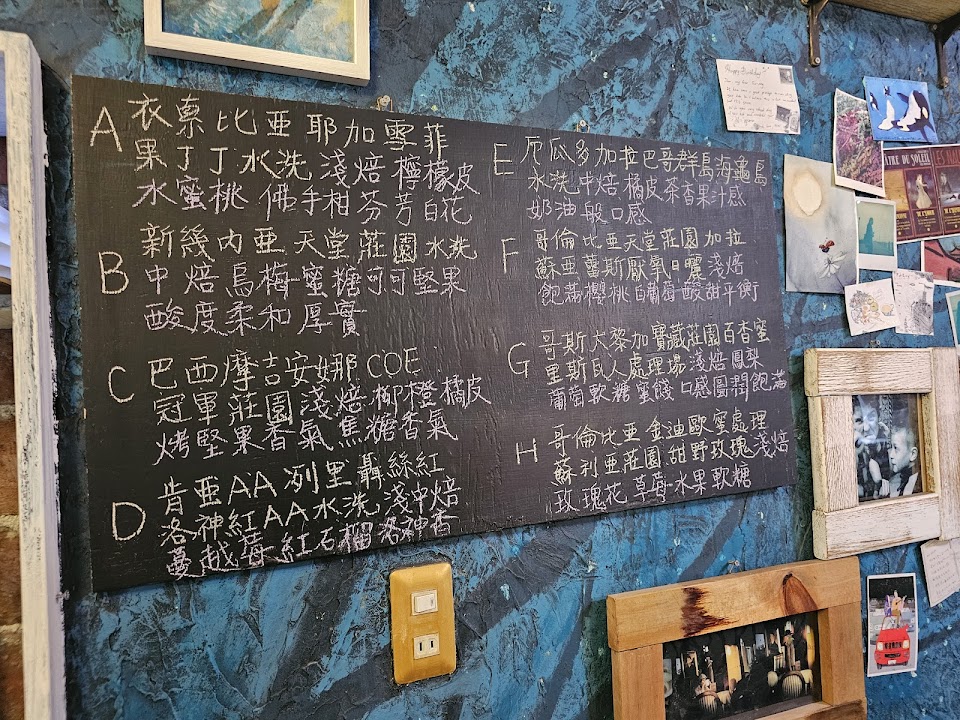 A 衣索比亜 耶加雪菲
果丁丁水洗 淺焙 檸檬皮
水蜜桃 佛手柑 芬芳白花
B 新幾內亜 天堂莊園 水洗
中焙 烏梅 蜜糖可可堅果
酸度柔和 厚實
C 巴西摩吉安娜 COE
冠軍莊園淺焙 柳橙橘皮
烤堅果香氣 焦糖香氣
D 肯亜AA 冽里聶絲紅
洛神紅AA水洗 淺中焙
蔓越莓 紅石榴 洛神香
E 厄瓜多加拉巴哥群島海龜島
水洗 中焙 橘皮茶香果汁感
奶油般口感
F 哥倫比亜天堂莊園 加拉
蘇亜蕾斯厭氧日曬 淺焙
飽滿櫻桃 白葡萄 酸甜平衡
G 哥斯大黎加寶藏莊園百香蜜
里斯瓦人處理場 淺焙 鳳梨
葡萄軟糖 蜜餞 口感圓潤飽滿
H 哥倫比亜 金迪歐蜜處理
蘇利亜莊園 甜野玫瑰 淺焙
玫瑰花 草莓 水果軟糖
Happy Birthday